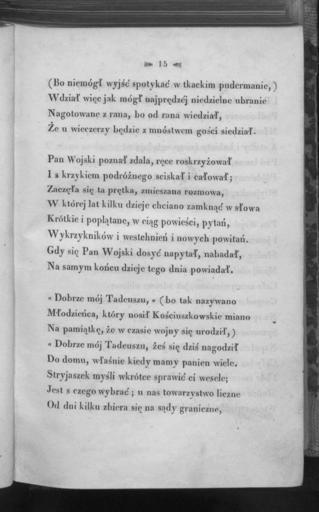 15
(Bo niemógł wyjść spotykać w tkackim pudermanie,)
Wdział więc jak mógł najprędzéj niedzielne ubranie
Nagotowane z rana, bo od rana wiedział,
Że u wieczerzy będzie z mnóstwem gości siedział.
Pan Wojski poznał zdala, ręce roskrzyżował
I z krzykiem podróżnego sciskał i całował;
Zaczęła się ta prętka, zmieszana rozmowa,
W której lat kilku dzieje chciano zamknąć w słowa
Krótkie i poplątane, w ciąg powieści, pytań,
Wykrzykników i westchnień i nowych powitań.
Gdy się Pan Wojski dosyć napytał, nabadał,
Na samym końcu dzieje tego dnia powiadał.
« Dobrze mój Tadeuszu, » (bo tak nazywano
Młodzieńca, który nosił Kościuszkowskie miano
Na pamiątkę, że w czasie wojny się urodził,)
« Dobrze mój Tadeuszu, żeś się dziś nagodził
Do domu, właśnie kiedy mamy panien wiele.
Stryjaszek myśli wkrótce sprawić ci wesele;
Jest z czego wybrać; u nas towarzystwo liczne
Od dni kilku zbiera się na sądy graniczne,